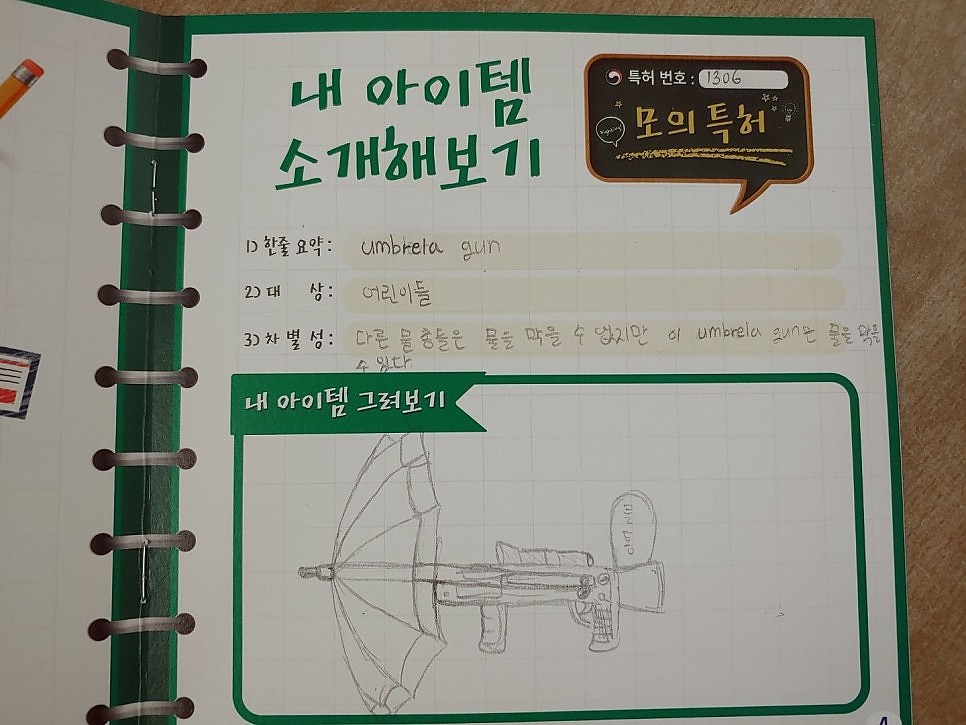 내 아이템
소개해보기
특허 번호 : 1306
모의 특허
1) 한줄 요약 : umbrela gun
2) 대 상 : 어린이들
3) 차 별 성 : 다른 물총들은 물을 막을 수 없지만 이 umbrela gun은 물을 막을
수 있다.
내 아이템 그려보기